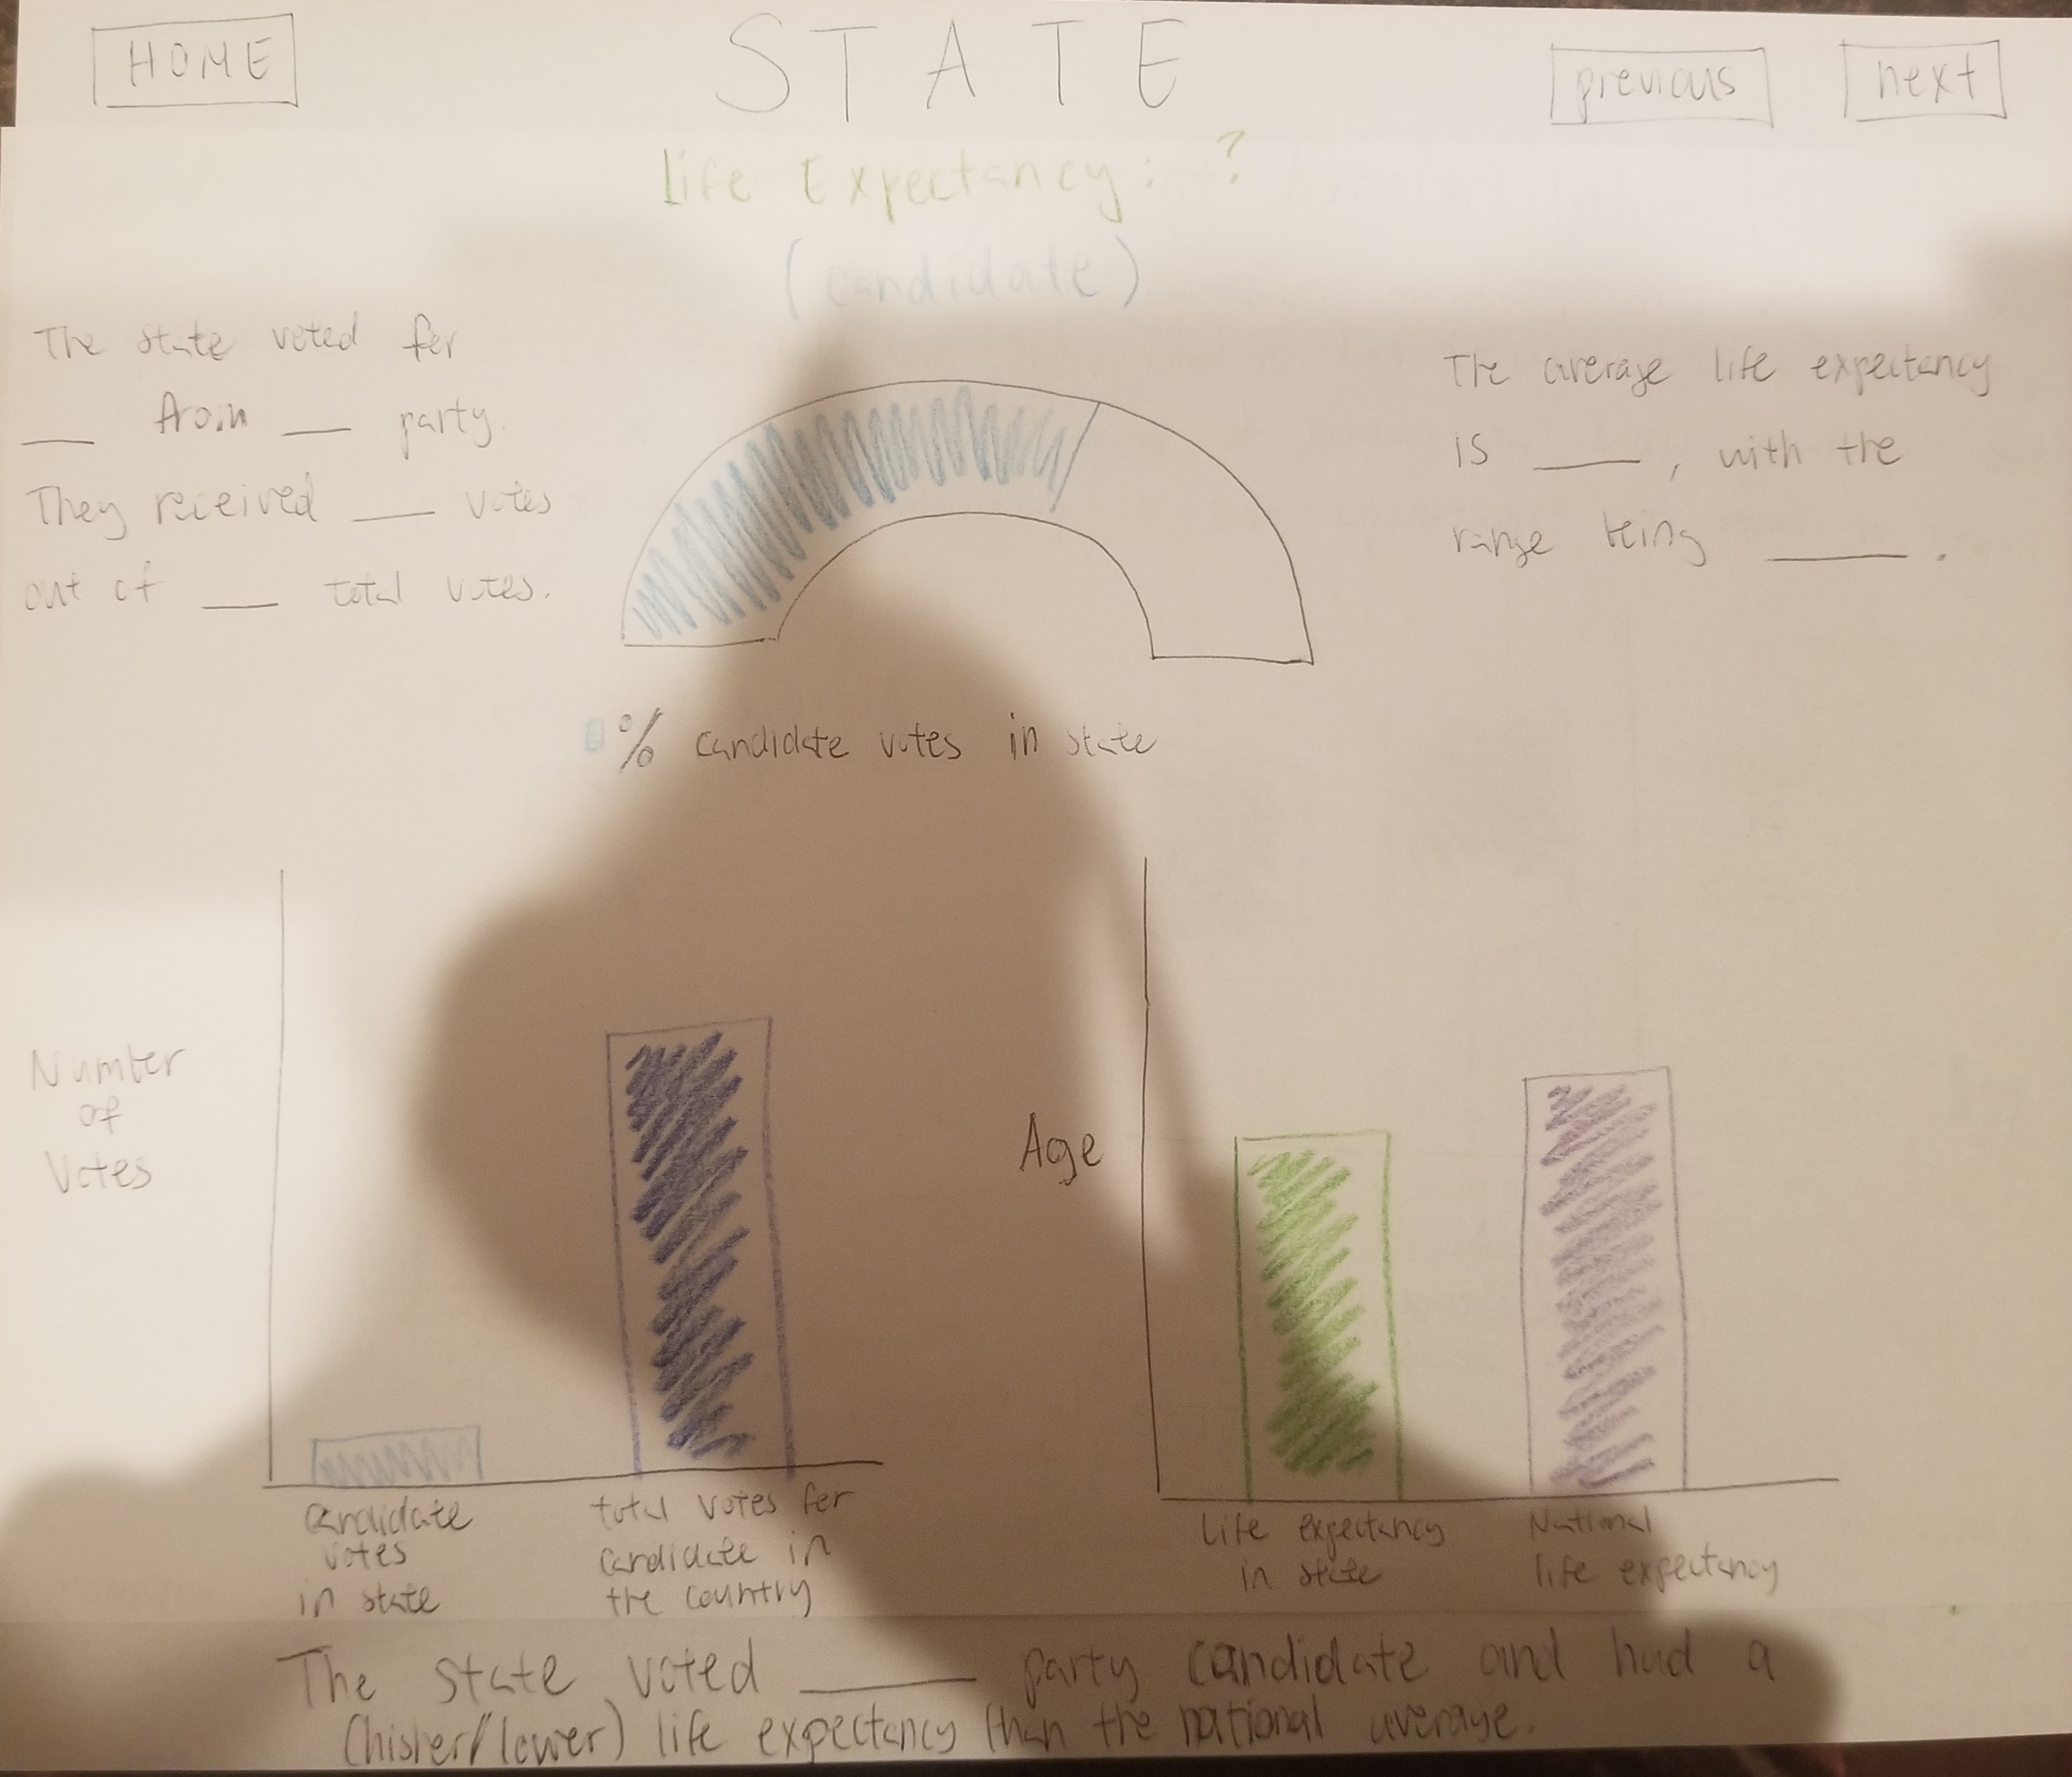 HOME
STATE
previous
next
Life Expectancy: ?
(candidate)
The state voted for
___ from ___ party.
They received ___ votes
out of ___ total votes.
The average life expectancy
is ___, with the
range being ___.
% candidate votes in state
Number
of
Votes
candidate
votes
in state
total votes for
candidate in
the country
Age
Life expectancy
in state
National
life expectancy
The state voted ___ party candidate and had a
(higher/lower) life expectancy than the national average.